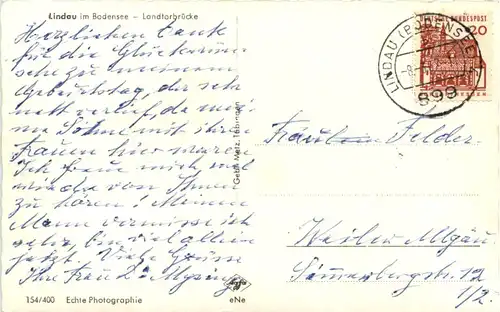 Lindau im Bodensee – Landtorbrücke
Herzlichen Dank
für die Glückwün-
sche zu meinem
Geburtstag, der sehr
nett verlief, da mei-
ne Söhne mit ihren
Frauen hier waren.
Ich freue mich, mal
wieder von Ihnen
zu hören! Meinen
Mann vermisse ich
sehr, bin viel allein
jetzt. Viele Grüsse
Ihre Frau
154/400 Echte Photographie
Gebr. Metz, Tübingen
Agfa
eNe
DEUTSCHE BUNDESPOST
20
LINDAU (BODENSEE)
899
Fräulein Felder
Weiler Allgäu
12
1/2.